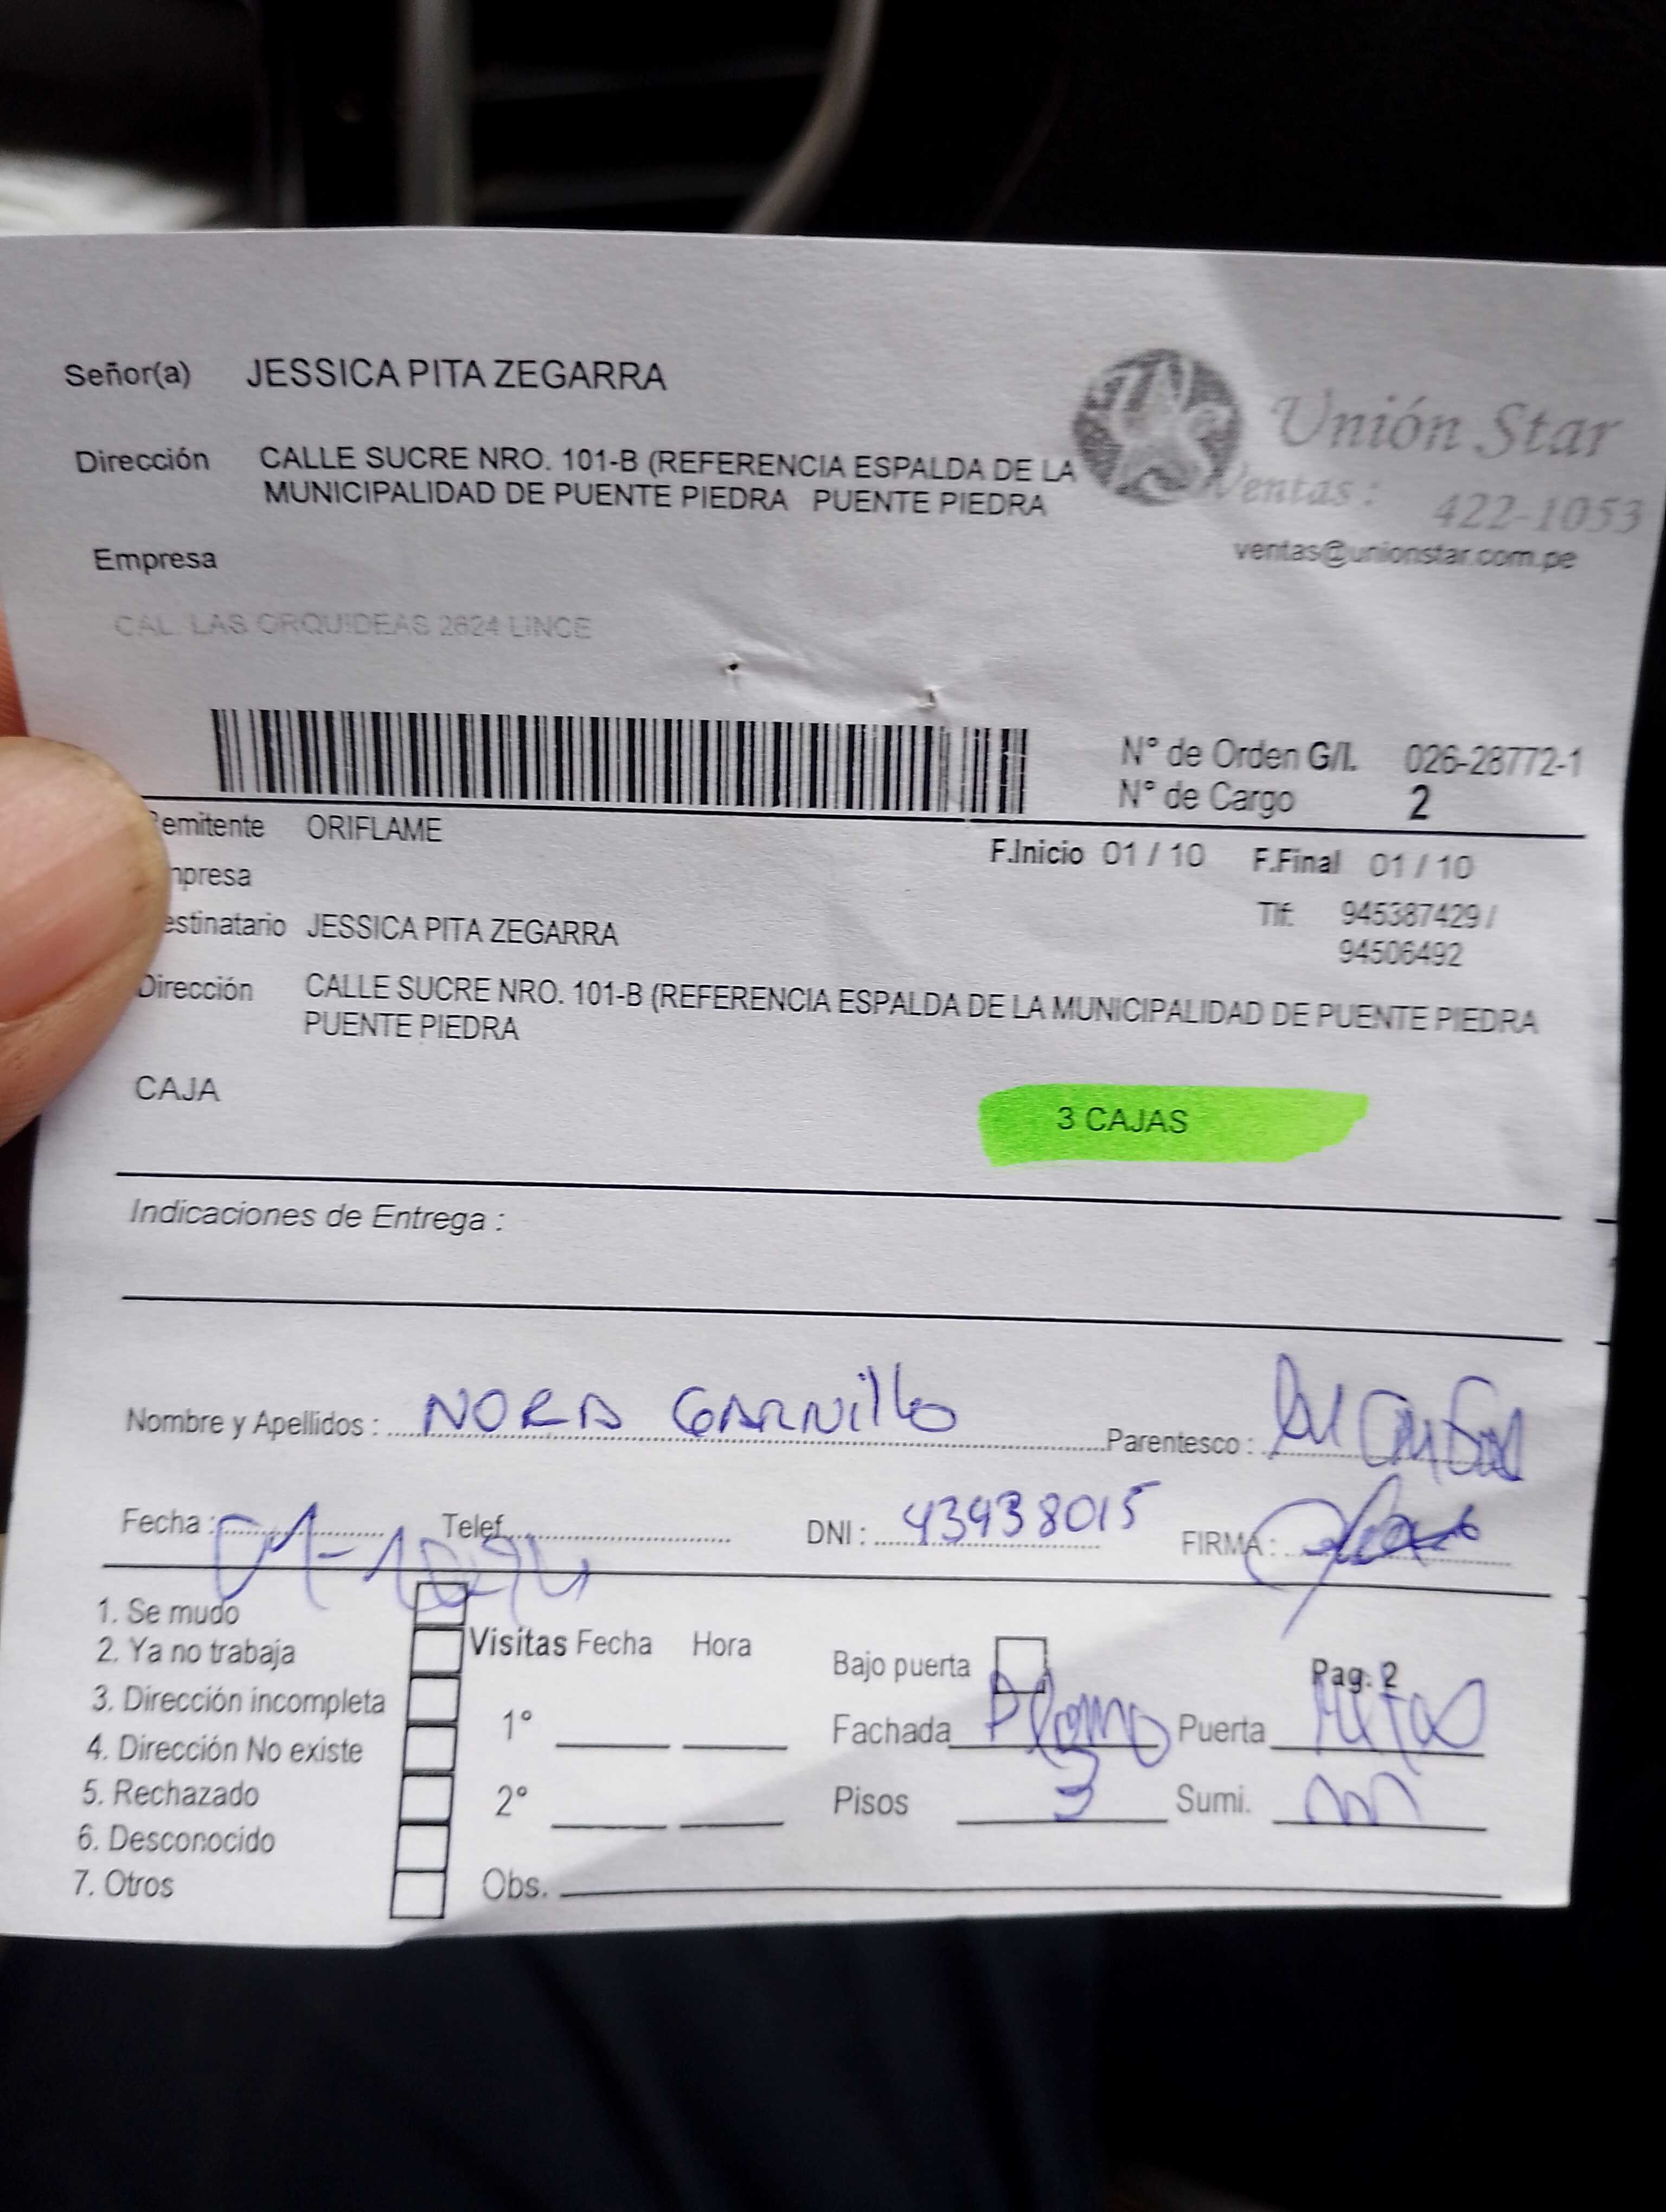 Señor(a) JESSICA PITA ZEGARRA
Unión Star
Dirección CALLE SUCRE NRO. 101-B (REFERENCIA ESPALDA DE LA
MUNICIPALIDAD DE PUENTE PIEDRA PUENTE PIEDRA
Ventas : 422-1053
ventas@unionstar.com.pe
Empresa
CAL. LAS ORQUIDEAS 2624 LINCE
N° de Orden G/I. 026-28772-1
N° de Cargo 2
emitente ORIFLAME
F.Inicio 01 / 10 F.Final 01 / 10
mpresa
Tlf: 945387429 /
94506492
estinatario JESSICA PITA ZEGARRA
Dirección CALLE SUCRE NRO. 101-B (REFERENCIA ESPALDA DE LA MUNICIPALIDAD DE PUENTE PIEDRA
PUENTE PIEDRA
CAJA 3 CAJAS
Indicaciones de Entrega :
Nombre y Apellidos : NORA Parentesco :
Fecha : Telef. DNI : 43938015 FIRMA :
1. Se mudo
2. Ya no trabaja
3. Dirección incompleta
4. Dirección No existe
5. Rechazado
6. Desconocido
7. Otros
Visitas Fecha Hora
1°
2°
Obs.
Bajo puerta Pag. 2
Fachada Plomo Puerta
Pisos 3 Sumi.